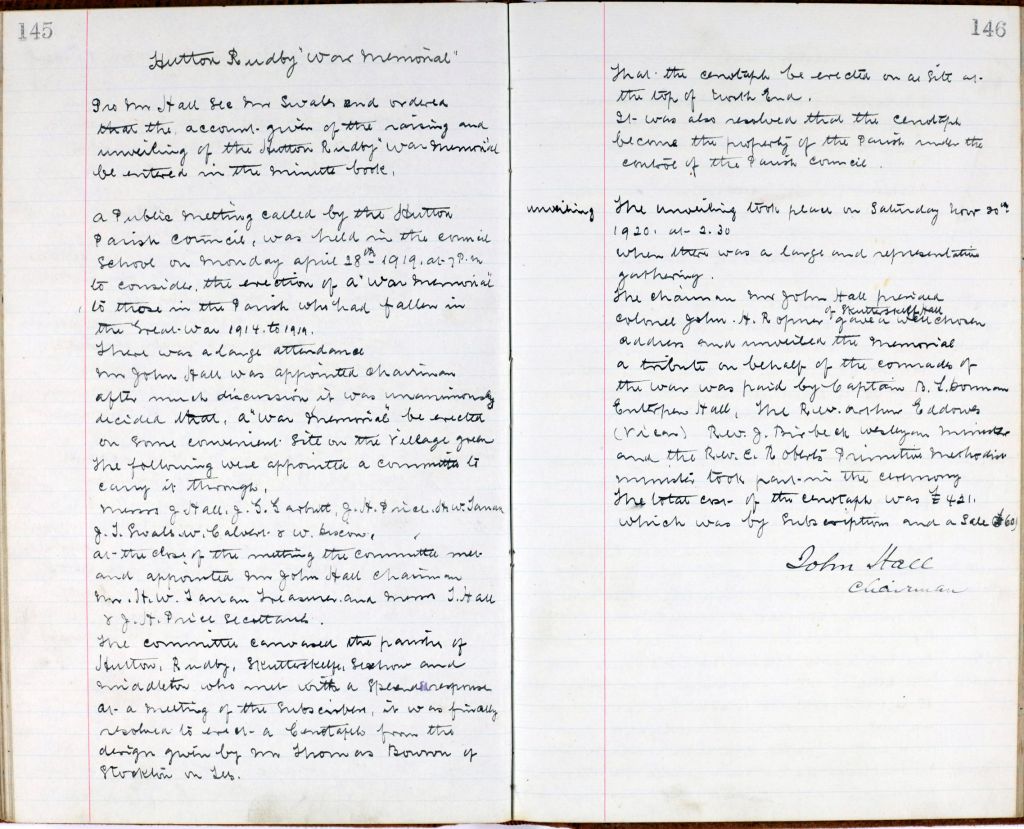 145
Hutton Rudby "War Memorial"
Pro Mr Hall Sec Mr Swales and ordered
that the account given of the raising and
unveiling of the Hutton Rudby "War Memorial
be entered in the minute book.
A Public Meeting called by the Hutton
Parish Council, was held in the council
School on Monday april 28th 1919. at 7 P.m
to consider, the erection of a "War Memorial"
to those in the Parish who had fallen in
the Great War 1914. to 1919.
There was a large attendance
Mr John Hall was appointed chairman
after much discussion it was unanimously
decided that, a "War Memorial" be erected
on some convenient Site on the Village green
The following were appointed a committee to
carry it through,
Messrs J Hall, J. G. Garbutt, J. H. Price. H. W. Tanan
J. T. Swales. W. Calvert & W.
at the close of the meeting the committee met
and appointed Mr John Hall chairman
Mr. H. W. Tanan Treasurer. and Messrs T. Hall
& J. H. Price
The committee canvased the parishes of
Hutton, Rudby, Skutterskelfe, Sexhow and
Middleton who met with a response
at a meeting of the Subscribers, it was finally
resolved to erect a Cenotaph from the
design given by Mr Thomas Bowron of
Stockton on Tes.
146
That the cenotaph be erected on a Site at
the top of North End.
It was also resolved that the cenotaph
become the property of the Parish under the
control of the Parish Council.
unveiling
The unveiling took place on Saturday Nov 20th
1920. at 2.30
when there was a large and representative
gathering.
The chairman Mr John Hall presided
of Skutterskelfe Hall
Colonel John. H. Ropner gave a well chosen
address and unveiled the Memorial
a tribute on behalf of the comrades of
the war was paid by Captain B. L. Dorman
Enterpen Hall, The Rev. arthur Eddowes
(Vicar) Rev. J. Birbeck Wesleyan Minister
and the Rev. C. Roberts Primitive Methodist
minister took part in the ceremony
The total cost of the cenotaph was £421.
which was by Subscription and a Sale £60)
John Hall
Chairman